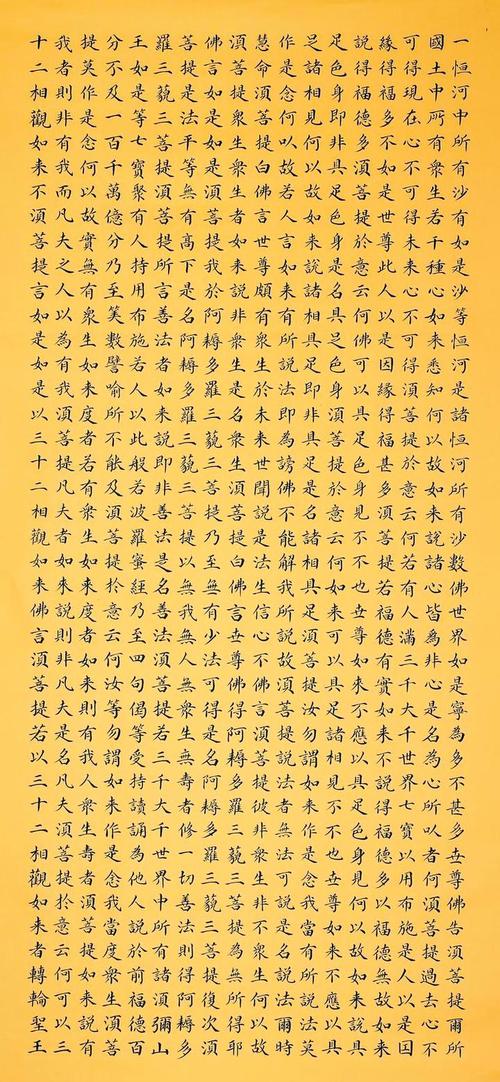 一恒河中所有沙有如是沙等恒河是諸恒河所有沙數佛世界如是寧為多不甚多世尊佛告須菩提爾所
國土中所有眾生若干種心如來悉知何以故如來說諸心皆為非心是名為心所以者何須菩提過去心不
可得現在心不可得未來心不可得須菩提於意云何若有人滿三千大千世界七寶以用布施是人以是因
緣得福多不如是世尊此人以是因緣得福甚多須菩提若福德有實如來不說得福德多以福德無故如來
說得福德多須菩提於意云何佛可以具足色身見不不也世尊如來不應以具足色身見何以故如來說具
足色身即非具足色身是名具足色身須菩提於意云何如來可以具足諸相見不不也世尊如來不應以具
足諸相見何以故如來說諸相具足即非具足是名諸相具足須菩提汝勿謂如來作是念我當有所說法莫
作是念何以故若人言如來有所說法即為謗佛不能解我所說故須菩提說法者無法可說是名說法爾時
慧命須菩提白佛言世尊頗有眾生於未來世聞說是法生信心不佛言須菩提彼非眾生非不眾生何以故
須菩提眾生眾生者如來說非眾生是名眾生須菩提白佛言世尊佛得阿耨多羅三藐三菩提為無所得耶
佛言如是如是須菩提我於阿耨多羅三藐三菩提乃至無有少法可得是名阿耨多羅三藐三菩提復次須
菩提是法平等無有高下是名阿耨多羅三藐三菩提以無我無人無眾生無壽者修一切善法則得阿耨多
羅三藐三菩提須菩提所言善法者如來說即非善法是名善法須菩提若三千大千世界中所有諸須彌山
王如是等七寶聚有人持用布施若人以此般若波羅蜜經乃至四句偈等受持讀誦為他人說於前福德百
分不及一百千萬億分乃至算數譬喻所不能及須菩提於意云何汝等勿謂如來作是念我當度眾生須菩
提莫作是念何以故實無有眾生如來度者若有眾生如來度者如來則有我人眾生壽者須菩提如來說有
我者則非有我而凡夫之人以為有我須菩提凡夫者如來說則非凡夫是名凡夫須菩提於意云何可以三
十二相觀如來不須菩提言如是如是以三十二相觀如來佛言須菩提若以三十二相觀如來者轉輪聖王